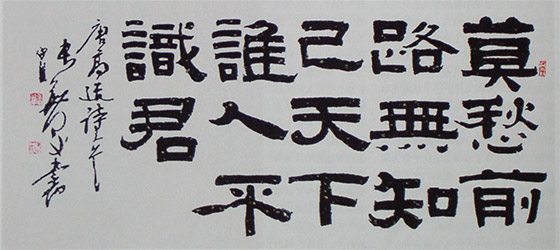 莫愁前
路無知
己天下
誰人不
識君
唐高适詩
書